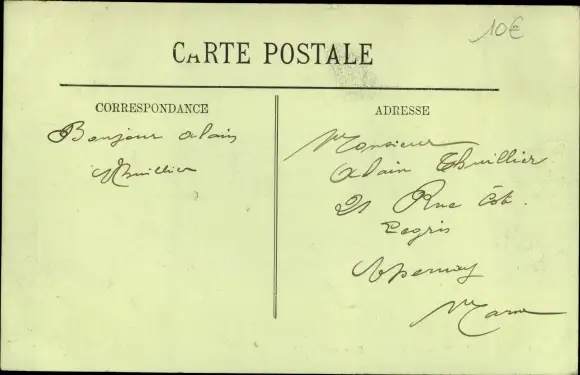 10€
CARTE POSTALE
CORRESPONDANCE
Bonjour Alain
Thuillier
ADRESSE
Monsieur
Alain Thuillier
21 Rue
Legris
Epernay
Marne